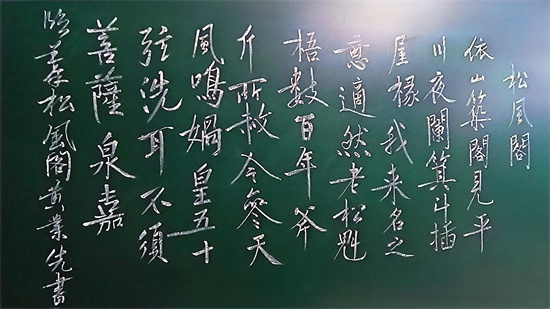 松風閣
依山築閣見平
川夜闌箕斗插
屋椽我来名之
意適然老松魁
梧數百年斧
斤所赦今參天
風鳴媧皇五十
弦洗耳不須
菩薩泉嘉
臨摹松風閣黄業先書